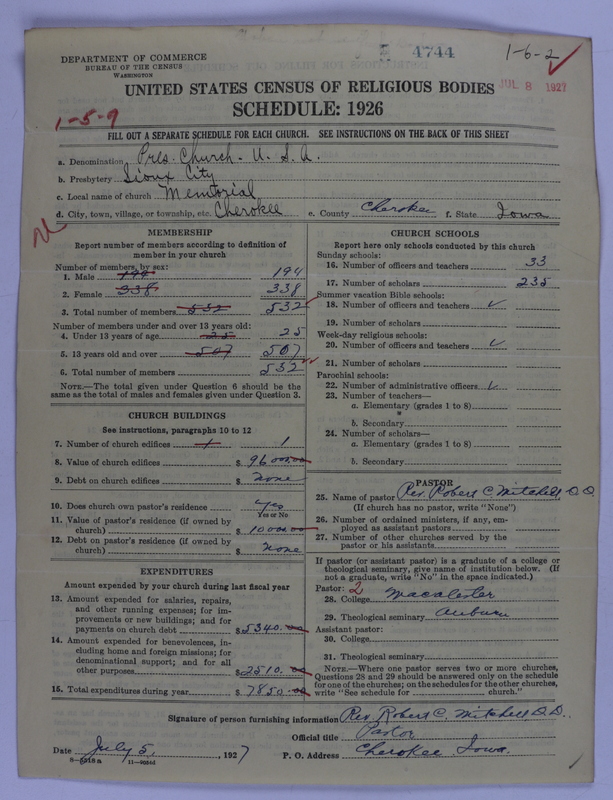 4744
1-6-2
DEPARTMENT OF COMMERCE
BUREAU OF THE CENSUS
WASHINGTON
UNITED STATES CENSUS OF RELIGIOUS BODIES
JUL 8 1927
SCHEDULE: 1926
1-5-9
FILL OUT A SEPARATE SCHEDULE FOR EACH CHURCH. SEE INSTRUCTIONS ON THE BACK OF THIS SHEET
a. Denomination Pres. Church - U. S. A.
b. Presbytery Sioux City
c. Local name of church Memorial
d. City, town, village, or township, etc. Cherokee e. County Cherokee f. State Iowa
MEMBERSHIP
Report number of members according to definition of
member in your church
Number of members, by sex:
1. Male 194 194
2. Female 338 338
3. Total number of members 532 532
Number of members under and over 13 years old:
4. Under 13 years of age 25 25
5. 13 years old and over 507 507
6. Total number of members 532
NOTE.—The total given under Question 6 should be
same as the total of males and females given under Question 3.
CHURCH BUILDINGS
See instructions, paragraphs 10 to 12
7. Number of church edifices 1 1
8. Value of church edifices $ 96000.00
9. Debt on church edifices $ None
10. Does church own pastor's residence Yes
Yes or No
11. Value of pastor's residence (if owned by
church) $ 10000.00
12. Debt on pastor's residence (if owned by
church) $ None
EXPENDITURES
Amount expended by your church during last fiscal year
13. Amount expended for salaries, repairs,
and other running expenses; for im-
provements or new buildings; and for
payments on church debt $ 5340.00
14. Amount expended for benevolences, in-
cluding home and foreign missions; for
denominational support; and for all
other purposes $ 2510.00
15. Total expenditures during year $ 7850.00
CHURCH SCHOOLS
Report here only schools conducted by this church
Sunday schools:
16. Number of officers and teachers 33
17. Number of scholars 235
Summer vacation Bible schools:
18. Number of officers and teachers ✓
19. Number of scholars
Week-day religious schools:
20. Number of officers and teachers ✓
21. Number of scholars
Parochial schools:
22. Number of administrative officers ✓
23. Number of teachers—
a. Elementary (grades 1 to 8)
b. Secondary
24. Number of scholars—
a. Elementary (grades 1 to 8)
b. Secondary
PASTOR
25. Name of pastor Rev. Robert C. Mitchell D.D.
(If church has no pastor, write "None")
26. Number of ordained ministers, if any, em-
ployed as assistant pastors
27. Number of other churches served by the
pastor or his assistants
If pastor (or assistant pastor) is a graduate of a college or
theological seminary, give name of institution below. (If
not a graduate, write "No" in the space indicated.)
Pastor: 2
28. College Macalester
29. Theological seminary Auburn
Assistant pastor:
30. College
31. Theological seminary
NOTE.—Where one pastor serves two or more churches,
Questions 28 and 29 should be answered only on the schedule
for one of the churches; on the schedules for the other churches,
write "See schedule for church."
Signature of person furnishing information Rev. Robert C. Mitchell D.D.
Official title Pastor
Date July 5, 1927 P. O. Address Cherokee Iowa.